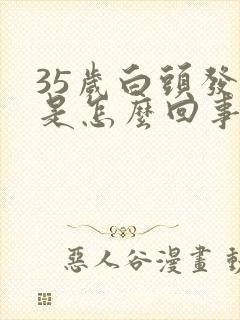 35歲白頭發
是怎麼回事
惡人谷漫畫